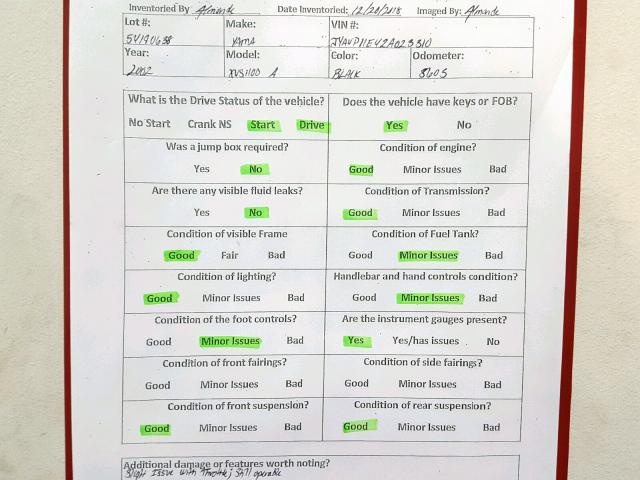 Inventoried By Almende Date Inventoried: 12/20/2018 Imaged By: Almende
Lot #: Make: VIN #:
54190658 YAMA JYAVP11E42A023310
Year: Model: Color: Odometer:
2002 XVS1100 A BLACK 8605
What is the Drive Status of the vehicle? Does the vehicle have keys or FOB?
No Start Crank NS Start Drive Yes No
Was a jump box required? Condition of engine?
Yes No Good Minor Issues Bad
Are there any visible fluid leaks? Condition of Transmission?
Yes No Good Minor Issues Bad
Condition of visible Frame Condition of Fuel Tank?
Good Fair Bad Good Minor Issues Bad
Condition of lighting? Handlebar and hand controls condition?
Good Minor Issues Bad Good Minor Issues Bad
Condition of the foot controls? Are the instrument gauges present?
Good Minor Issues Bad Yes Yes/has issues No
Condition of front fairings? Condition of side fairings?
Good Minor Issues Bad Good Minor Issues Bad
Condition of front suspension? Condition of rear suspension?
Good Minor Issues Bad Good Minor Issues Bad
Additional damage or features worth noting?
Slight Issue with Throttle; Still operable